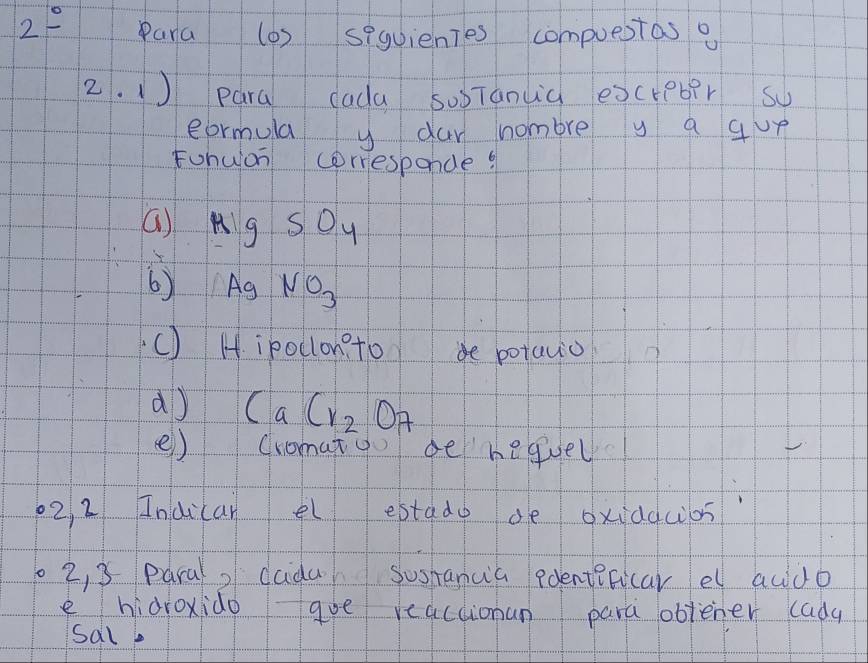 2º Para los siguientes compuestos:
2.1) para cada sustancia escribir su
formula y dar nombre y a que
Función corresponde:
a) HgSO4
b) AgNO3
c) Hipoclorito de potacio
d) CaCr2O7
e) Cromato de niquel
•2,2 Indicar el estado de oxidación
• 2,3 Para cada sustancia identificar el acido
e hidroxido que reaccionan para obtener cada
Sal.